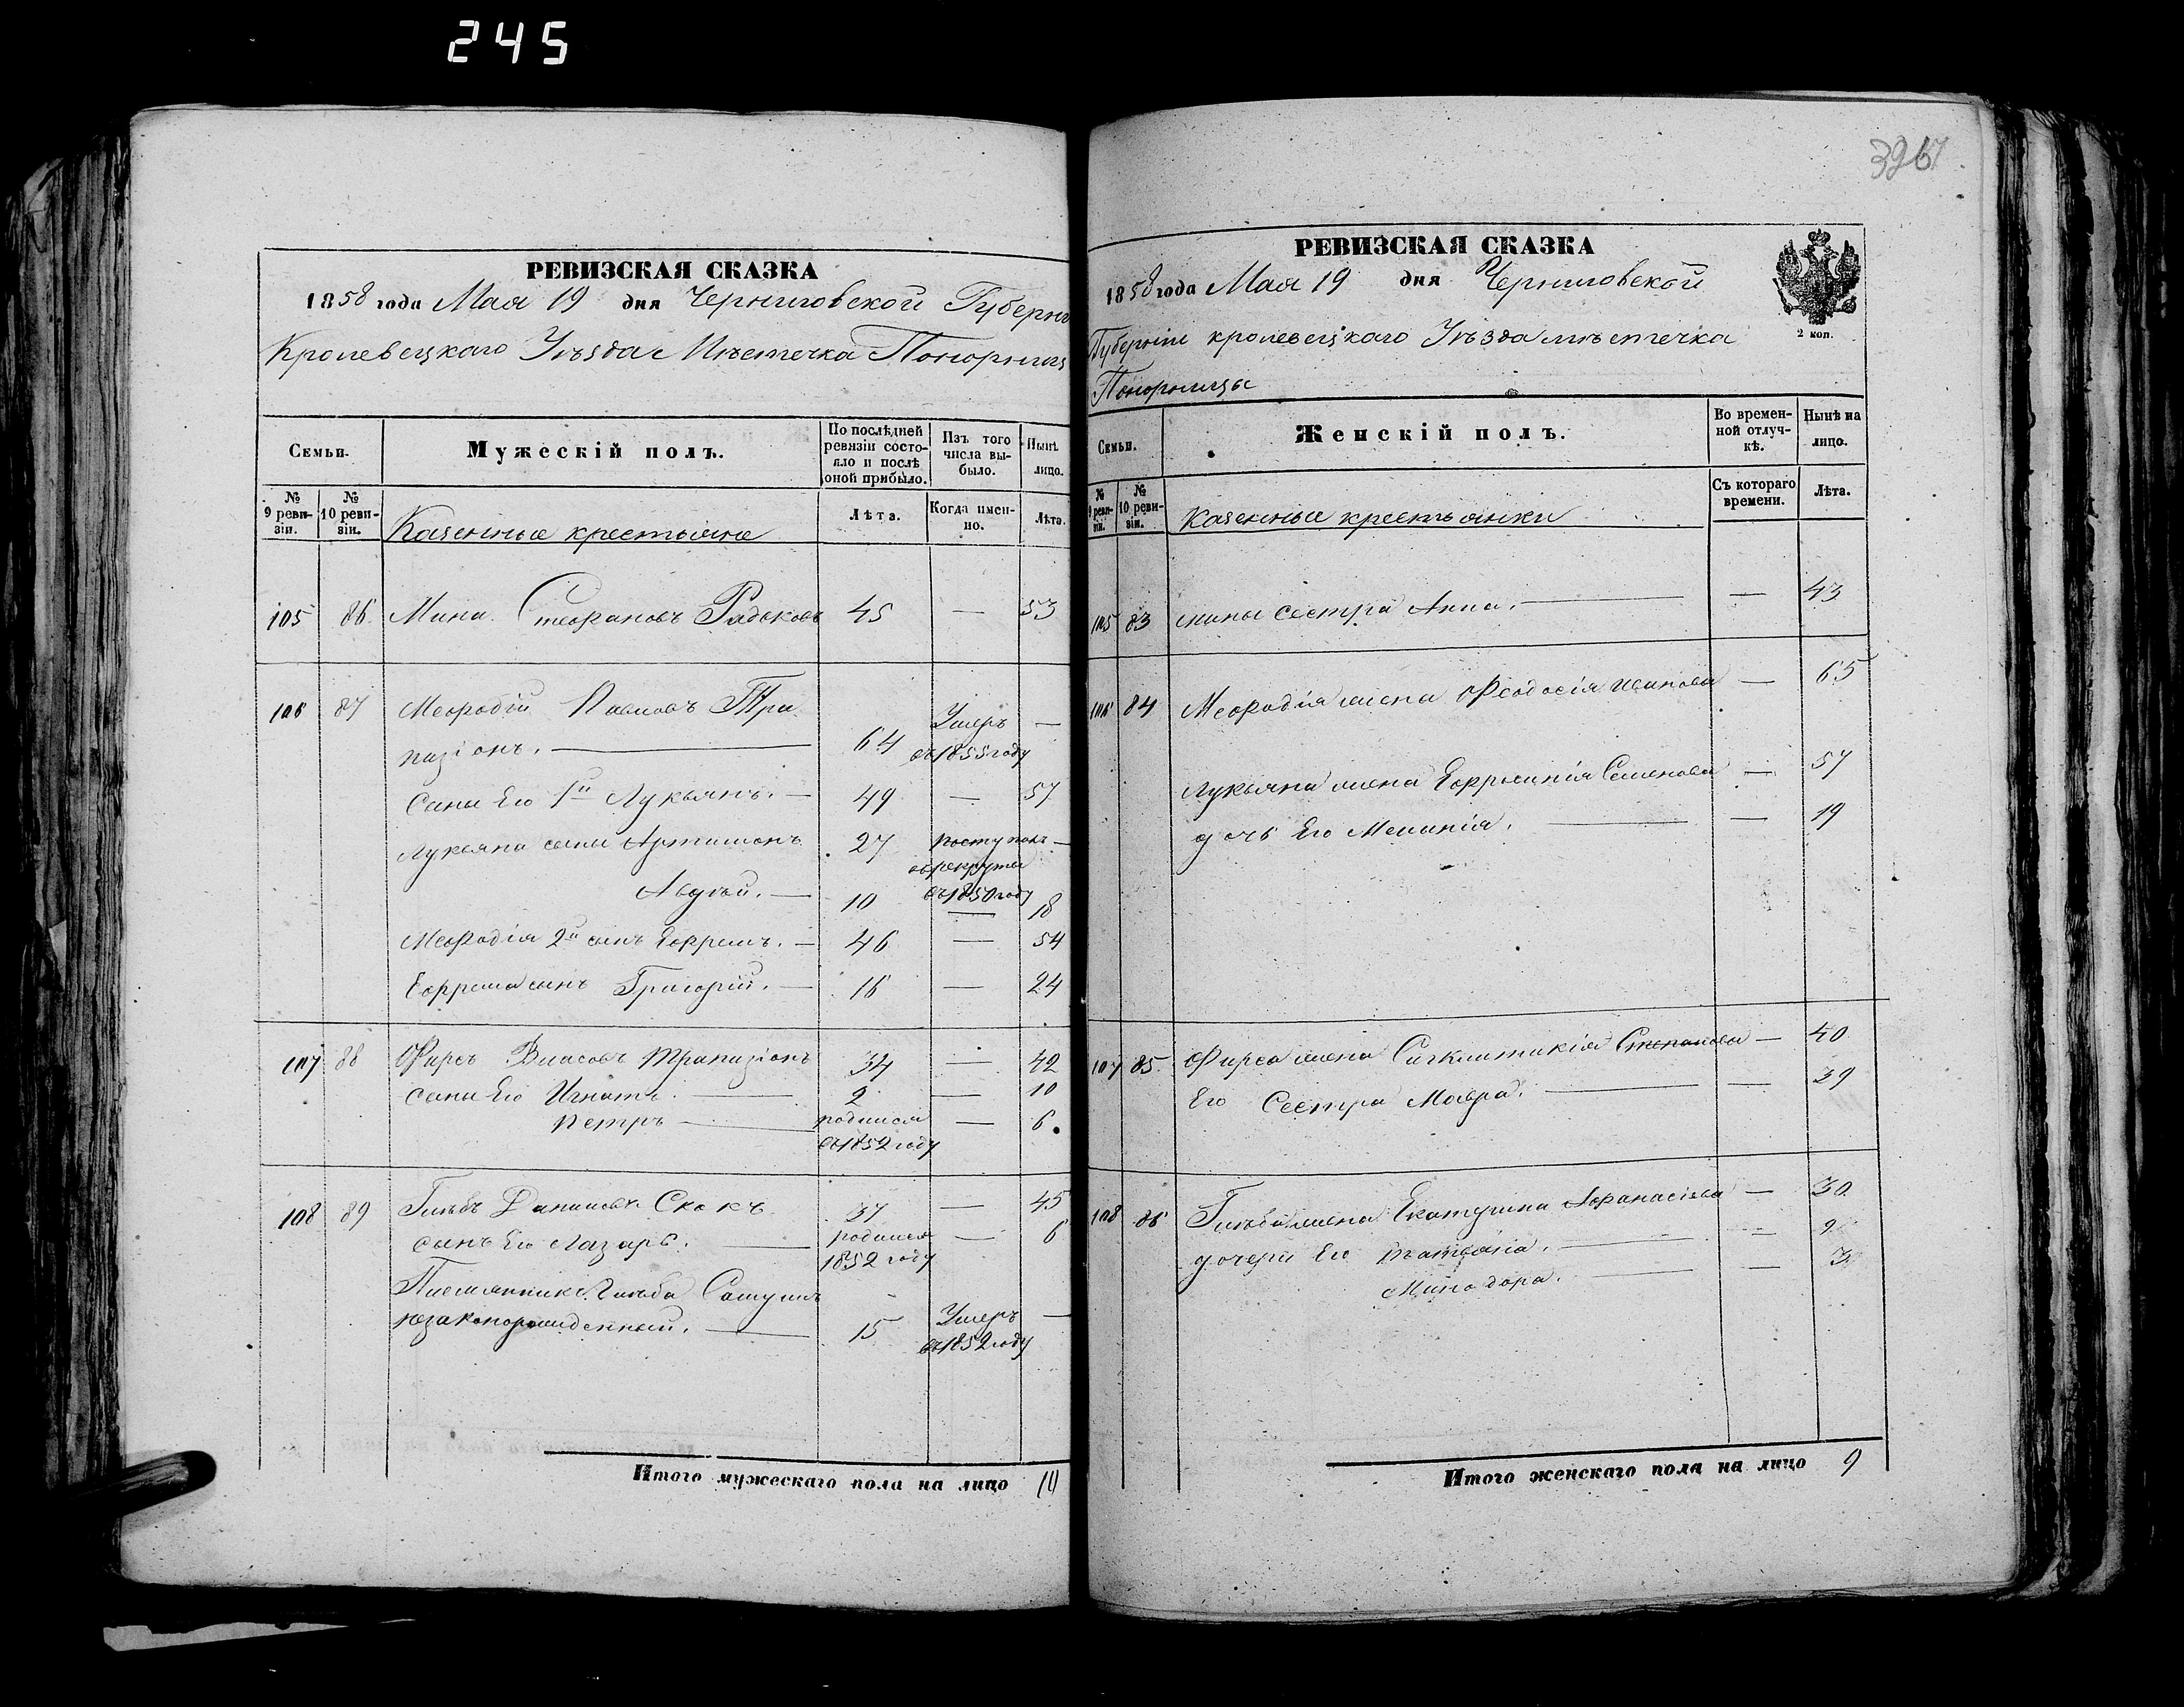 245
РЕВИЗСКАЯ СКАЗКА
1858 года Мая 19 дня Черниговской Губерн
Кролевецкаго Уѣзда Мѣстечка Понорниц
Семьи.
Мужескій полъ.
По послѣдней ревизіи состояло и послѣ оной прибыло.
Изъ того числа выбыло.
Нынѣ лицо.
№ 9 ревизіи.
№ 10 ревизіи.
Казенные крестьяне
Лѣта.
Когда именно.
Лѣта.
105 86 Мина Стефановъ Радьковъ 45 — 53
106 87 Мефодій Павловъ Тра
пазіонъ. — 64 Умеръ въ 1855 году —
Сыны Его 1й Лукьянъ. — 49 — 57
Лукьяна сыны Артимонъ 27 поступилъ въ рекруты въ 1850 году —
Авдѣй. — 10 — 18
Мефодія 2й сынъ Ефремъ. — 46 — 54
Ефрема сынъ Григорій. — 16 — 24
107 88 Фирсъ Власовъ Трапазіонъ 34 — 42
сыны Его Игнатъ. — 2 — 10
Петръ — родился въ 1852 году — 6
108 89 Глѣбъ Даниловъ Скокъ 37 — 45
сынъ Его Лазарь. — родился 1852 году — 6
Племянникъ Глѣба Самуилъ
незаконорожденный. — 15 Умеръ въ 1852 году —
Итого мужескаго пола на лицо 10
3267
РЕВИЗСКАЯ СКАЗКА
1858 года Мая 19 дня Черниговской
Губерніи кролевецкаго Уѣзда мѣстечка
Понорницы
2 коп.
Семьи.
Женскій полъ.
Во временной отлучкѣ.
Нынѣ на лицо.
№ 9 ревизіи.
№ 10 ревизіи.
Казенные крестьянки
Съ котораго времени.
Лѣта.
105 83 мины сестра Анна. — — 43
106 84 Мефодія жена Феодосія Иванова — 65
Лукьяна жена Ефросинія Семенова — 57
дочь Его Меланія. — — 19
107 85 Фирса жена Синклитикія Степанова — 40
Его Сестра Мавра. — — 39
108 86 Глѣба жена Екатерина Афанасіева — 30
дочери Его Татіана. — — 9
Минодора. — — 3
Итого женскаго пола на лицо 9